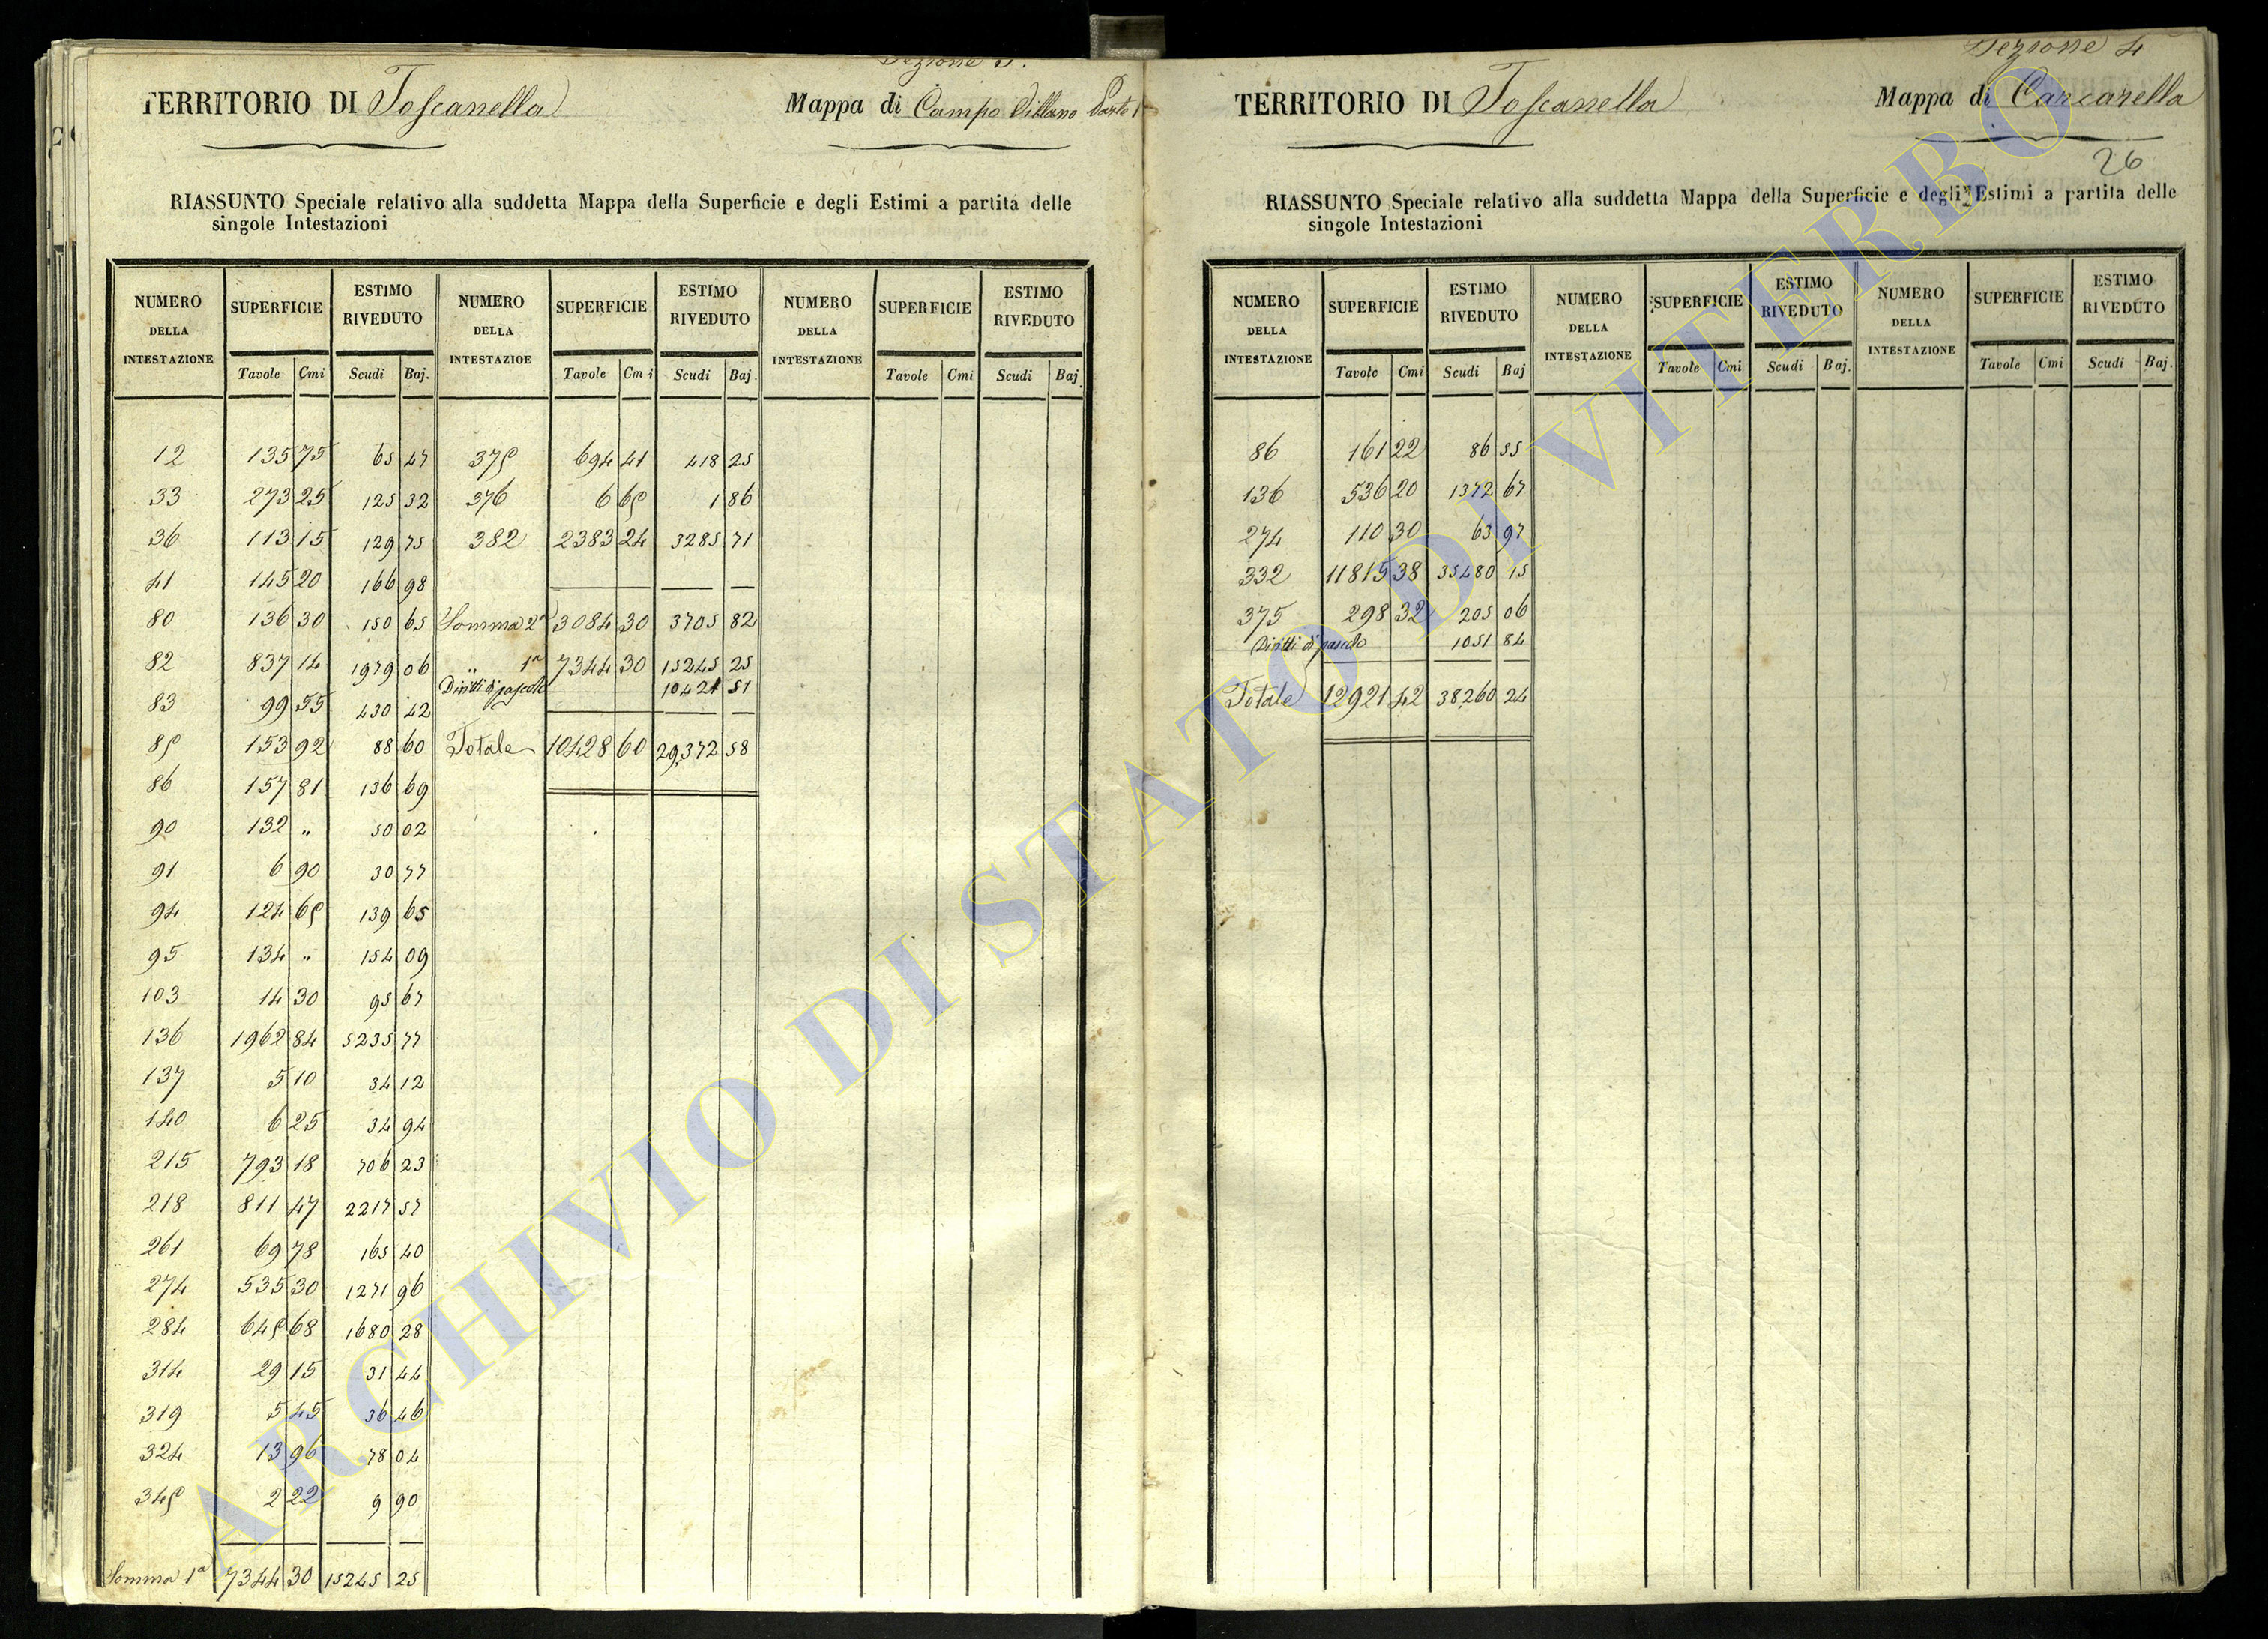 TERRITORIO DI Toscanella
Mappa di Campo Villano Parte 1
RIASSUNTO Speciale relativo alla suddetta Mappa della Superficie e degli Estimi a partita delle
singole Intestazioni
NUMERO DELLA INTESTAZIONE SUPERFICIE ESTIMO RIVEDUTO NUMERO DELLA INTESTAZIOE SUPERFICIE ESTIMO RIVEDUTO NUMERO DELLA INTESTAZIONE SUPERFICIE ESTIMO RIVEDUTO
Tavole Cmi Scudi Baj. Tavole Cmi Scudi Baj. Tavole Cmi Scudi Baj.
12 135 75 65 47 375 694 41 418 25
33 273 25 125 32 376 6 65 1 86
36 113 15 129 75 382 2383 24 3285 71
41 145 20 166 98
80 136 30 150 65 Somma 2a 3084 30 3705 82
82 837 14 1979 06 " 1a 7344 30 15245 25
Diritti di pascolo 10421 51
83 99 55 430 42
85 153 92 88 60 Totale 10428 60 29,372 58
86 157 81 136 69
90 132 " 50 02
91 6 90 30 77
94 124 65 139 65
95 134 " 154 09
103 14 30 95 67
136 1962 84 5235 77
137 5 10 34 12
140 6 25 34 94
215 793 18 706 23
218 811 47 2217 57
261 69 78 165 40
274 535 30 1271 96
284 645 68 1680 28
314 29 15 31 44
319 5 45 36 46
324 13 96 78 04
345 2 22 9 90
Somma 1a 7344 30 15245 25
Sezione 4
TERRITORIO DI Toscanella
Mappa di Carcarella
26
RIASSUNTO Speciale relativo alla suddetta Mappa della Superficie e degli Estimi a partita delle
singole Intestazioni
NUMERO DELLA INTESTAZIONE SUPERFICIE ESTIMO RIVEDUTO NUMERO DELLA INTESTAZIONE SUPERFICIE ESTIMO RIVEDUTO NUMERO DELLA INTESTAZIONE SUPERFICIE ESTIMO RIVEDUTO
Tavole Cmi Scudi Baj Tavole Cmi Scudi Baj. Tavole Cmi Scudi Baj.
86 161 22 86 55
136 536 20 1372 67
274 110 30 63 97
332 11815 38 35480 15
375 298 32 205 06
Diritti di pascolo 1051 84
Totale 12921 42 38,260 24
ARCHIVIO DI STATO DI VITERBO